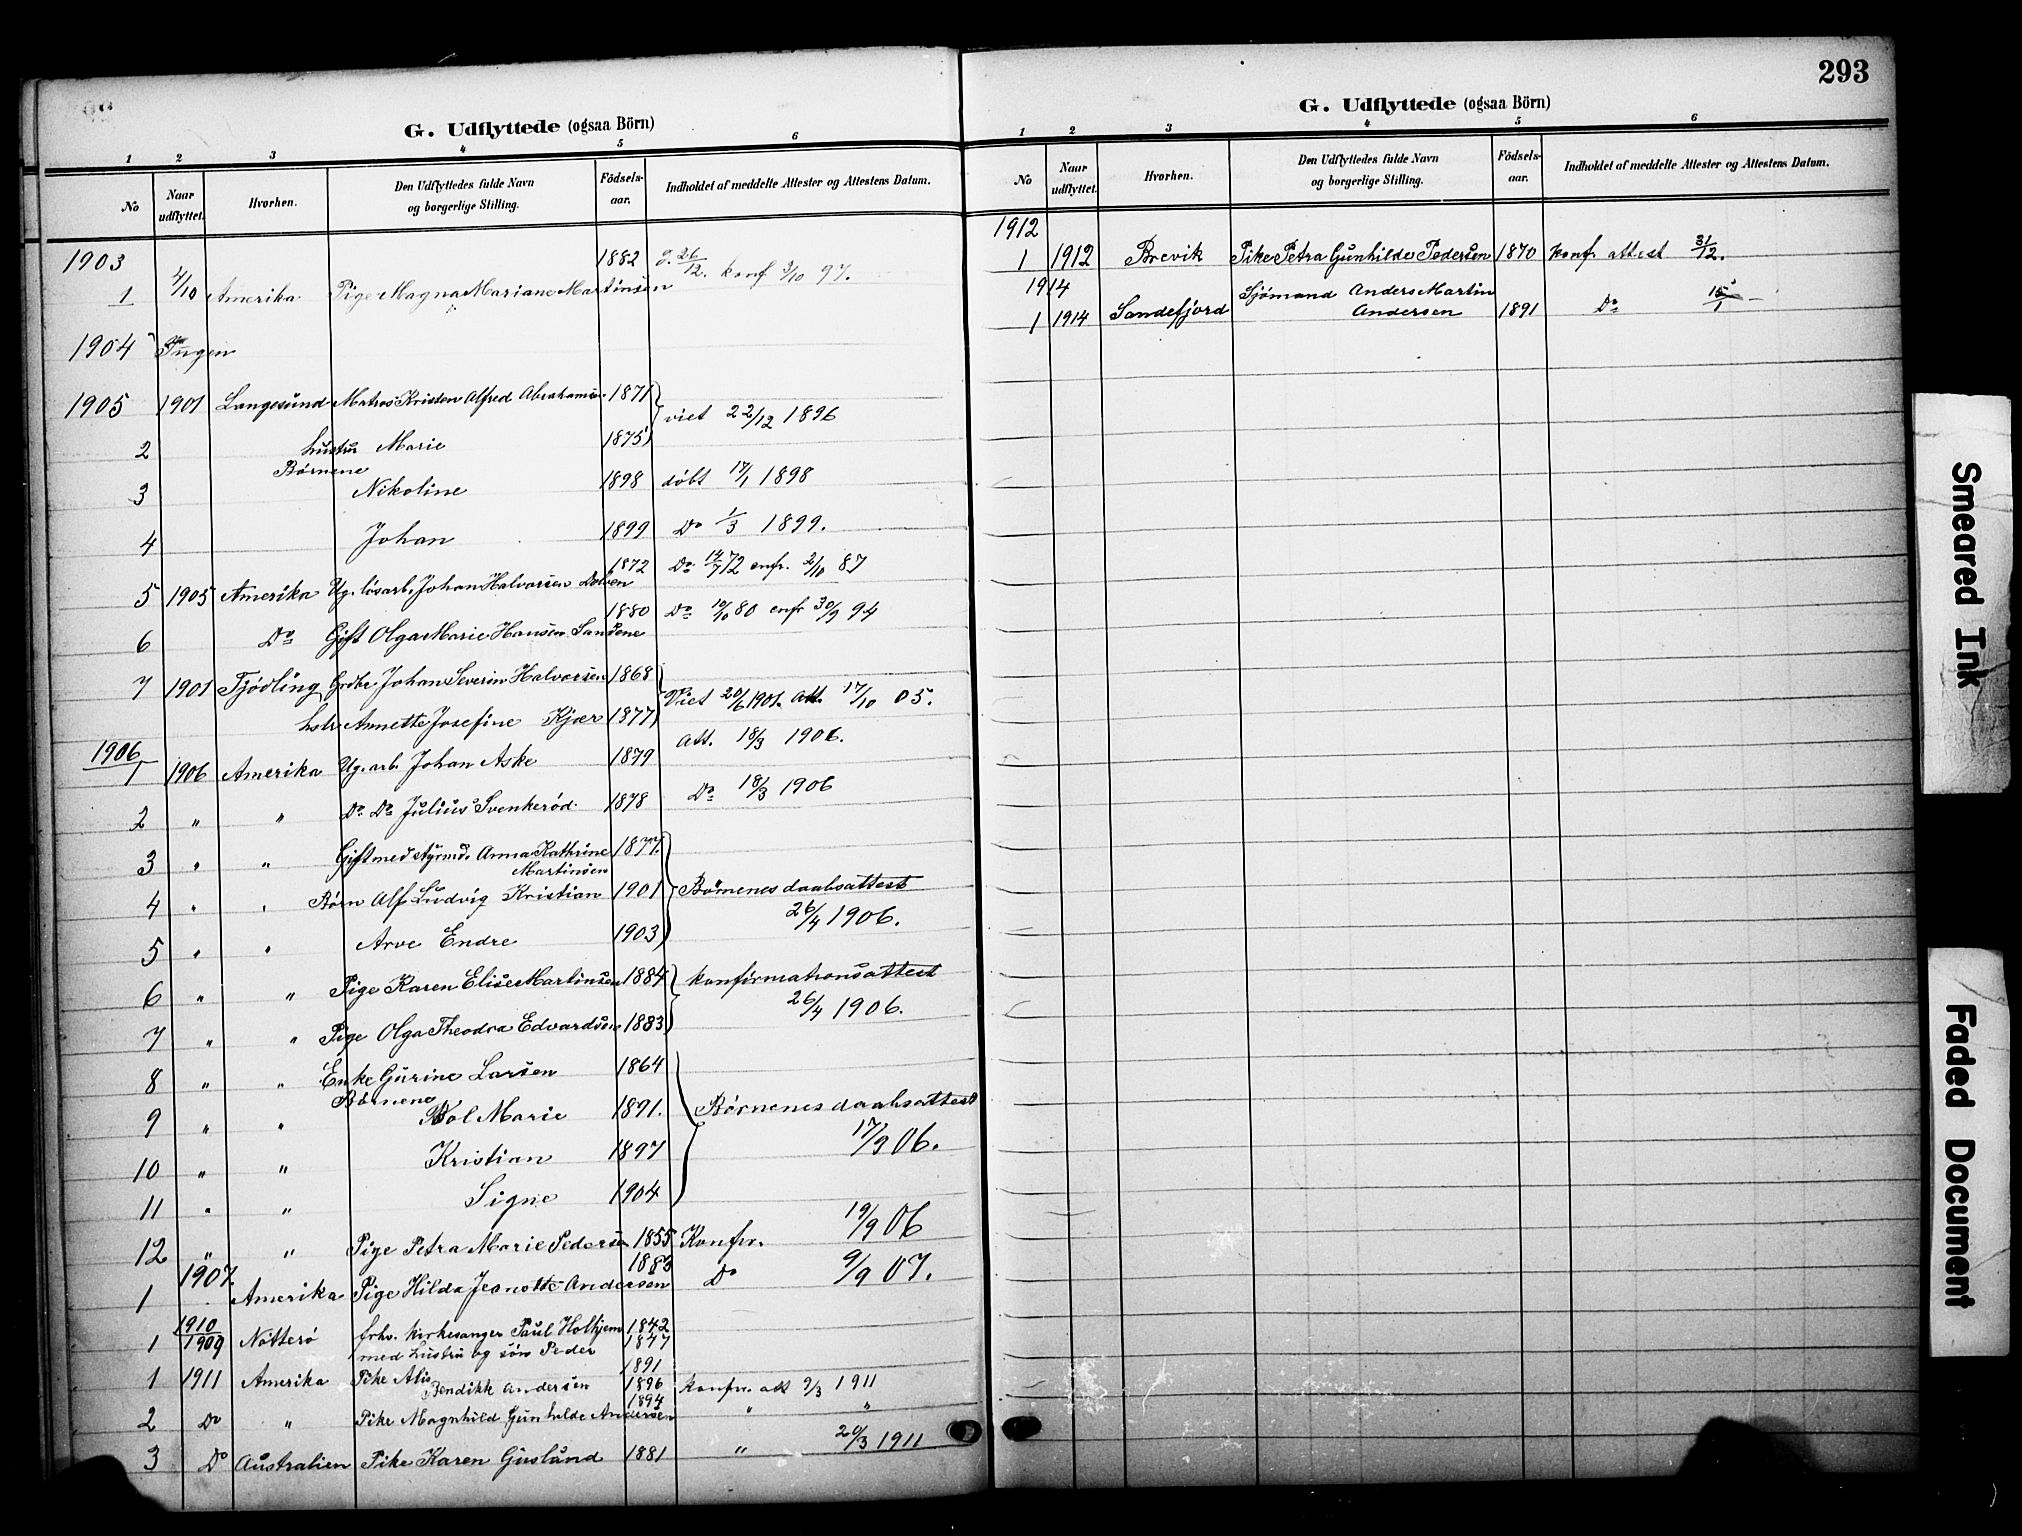 G. Udflyttede (ogsaa Börn)
1 2 3 4 5 6
No Naar udflyttet. Hvorhen. Den Udflyttedes fulde Navn og borgerlige Stilling. Födsels-aar. Indholdet af meddelte Attester og Attestens Datum.
1903
1 4/10 Amerika Pige Magna Mariane Martinsen 1882 f. 26/12. konf 3/10 97.
1904 Ingen
1905 1901 Langesund Matros Kristen Alfred Abrahamsen 1871 viet 22/12 1896
2 hustru Marie 1875
Børnene
3 Nikoline 1898 døbt 17/1 1898
4 Johan 1899 Do 1/3 1899.
5 1905 Amerika Ug. løsarb. Johan Halvorsen Dolven 1872 Do 14/7 72 cnfr. 2/10 87
6 Do Gift Olga Marie Hansen Sandene 1880 Do 10/10 80 cnfr 30/9 94
7 1901 Tjødling Grdbr. Johan Severin Halvorsen 1868 Viet 20/6 1901. Att. 17/10 05.
hstr Annette Josefine Kjær 1877
1906
1 1906 Amerika Ug. arb. Johan Aske 1879 Att. 18/3 1906.
2 " " Do Do Julius Svenkerød 1878 Do 18/3 1906
3 " " Gift med styrmd. Anna Kathrine Martinsen 1877.
4 " " Børn Alf Ludvig Kristian 1901 Børnenes daabsattest
5 " " Arve Endre 1903 26/4 1906.
6 " " Pige Karen Elise Martinsen 1884 konfirmationsattest
7 " " Pige Olga Theodra Edvardsen 1883 26/4 1906.
8 " " Enke Gurine Larsen 1864
Børnene
9 " " Bol Marie 1891. Børnenes daabsattest
10 " " Kristian 1897 17/9 06.
11 " " Signe 1904
12 " " Pige Petra Marie Pedersen 1855 Konfr. 19/9 06
1907.
1 Amerika Pige Hilda Jeanette Andersen 1883 Do 9/9 07.
1910
1 1909 Nøtterø frhv. kirkesanger Paul Holtjem 1842
med hustru og søn Peder 1847
1891
1 1911 Amerika Pike Alis Bendikk Andersen 1896 konfr. att 9/3 1911
2 Do " Pike Magnhild Gunhilde Andersen 1894 " "
3 Do Australien Pike Karen Guslund 1881 " 20/3 1911
293
G. Udflyttede (ogsaa Börn)
1 2 3 4 5 6
No Naar udflyttet. Hvorhen. Den Udflyttedes fulde Navn og borgerlige Stilling. Födsels-aar. Indholdet af meddelte Attester og Attestens Datum.
1912
1 1912 Brevik Pike Petra Gunhilde Pedersen 1870 konfr. attest 31/12.
1914
1 1914 Sandefjord Sjømand Anders Martin Andersen 1891 Do 15/1
Smeared Ink
Faded Document